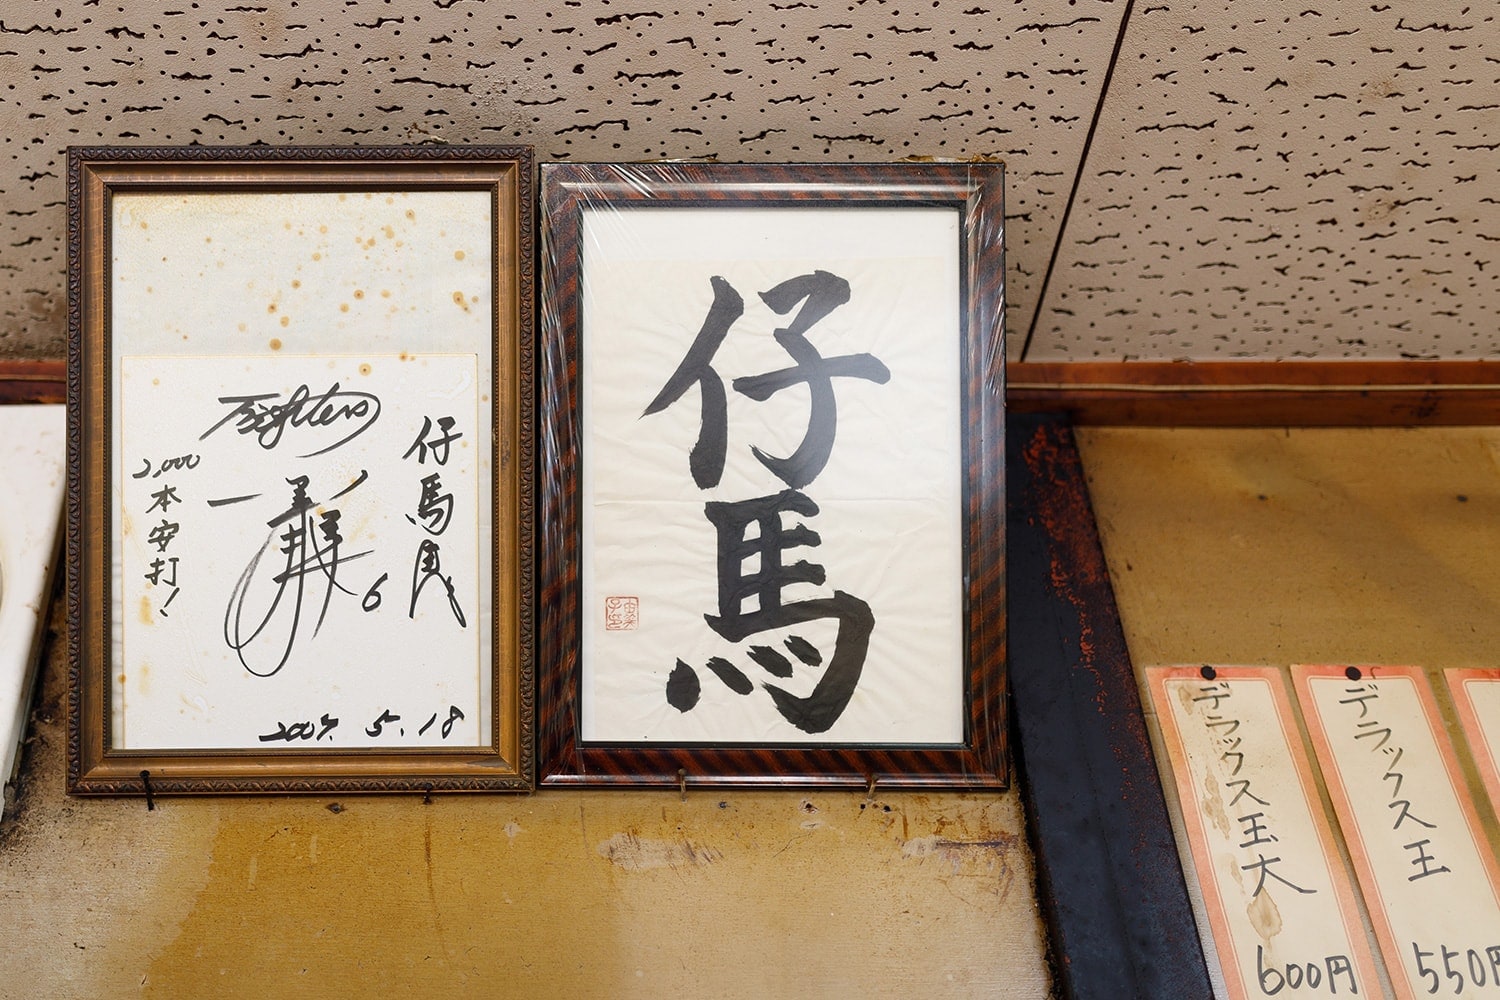 Fighters
仔馬さん
2,000本安打!
6
2007. 5. 18
仔馬
デラックス玉大
600円
デラックス玉
550円